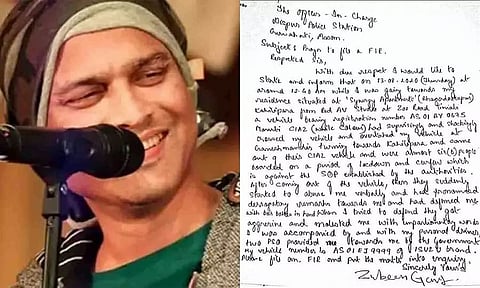 The Officer-In-Charge
Dispur Police Station
Guwahati, Assam.
Subject: Prayer to file a FIR.
Respected Sir,
With due respect I would like to
state and inform that on 13-08-2020 (Thursday) at
around 12-40 AM while I was going towards my
residence situated at "Synergy Apartment"
Kahilipara from AV Studio at Zoo Road Tiniali
a vehicle bearing registration number AS 01 AY 0675
Maruti CIAZ (White Colour) had
crossed my vehicle and overtaked my vehicle at
Ganeshmandir turning towards Kahilipara and came
out of their CIAZ vehicle and were almost six(6) people
boarded on a period of lockdown and curfew which
is against the SOP established by the authorities.
After coming out of the vehicle, then they suddenly
started to abuse me verbally and had pronounced
derogatory remarks towards me and had defamed me
with in hand. When I tried to defend they got
aggressive and molested me with words
I was accompanied by and with my personal driver,
two PSO provided towards me by the Government
my vehicle number is AS 01 9999 of ISUZU brand.
Please file an FIR and put the matter into enquiry.
Sincerely Yours
Zubeen Garg